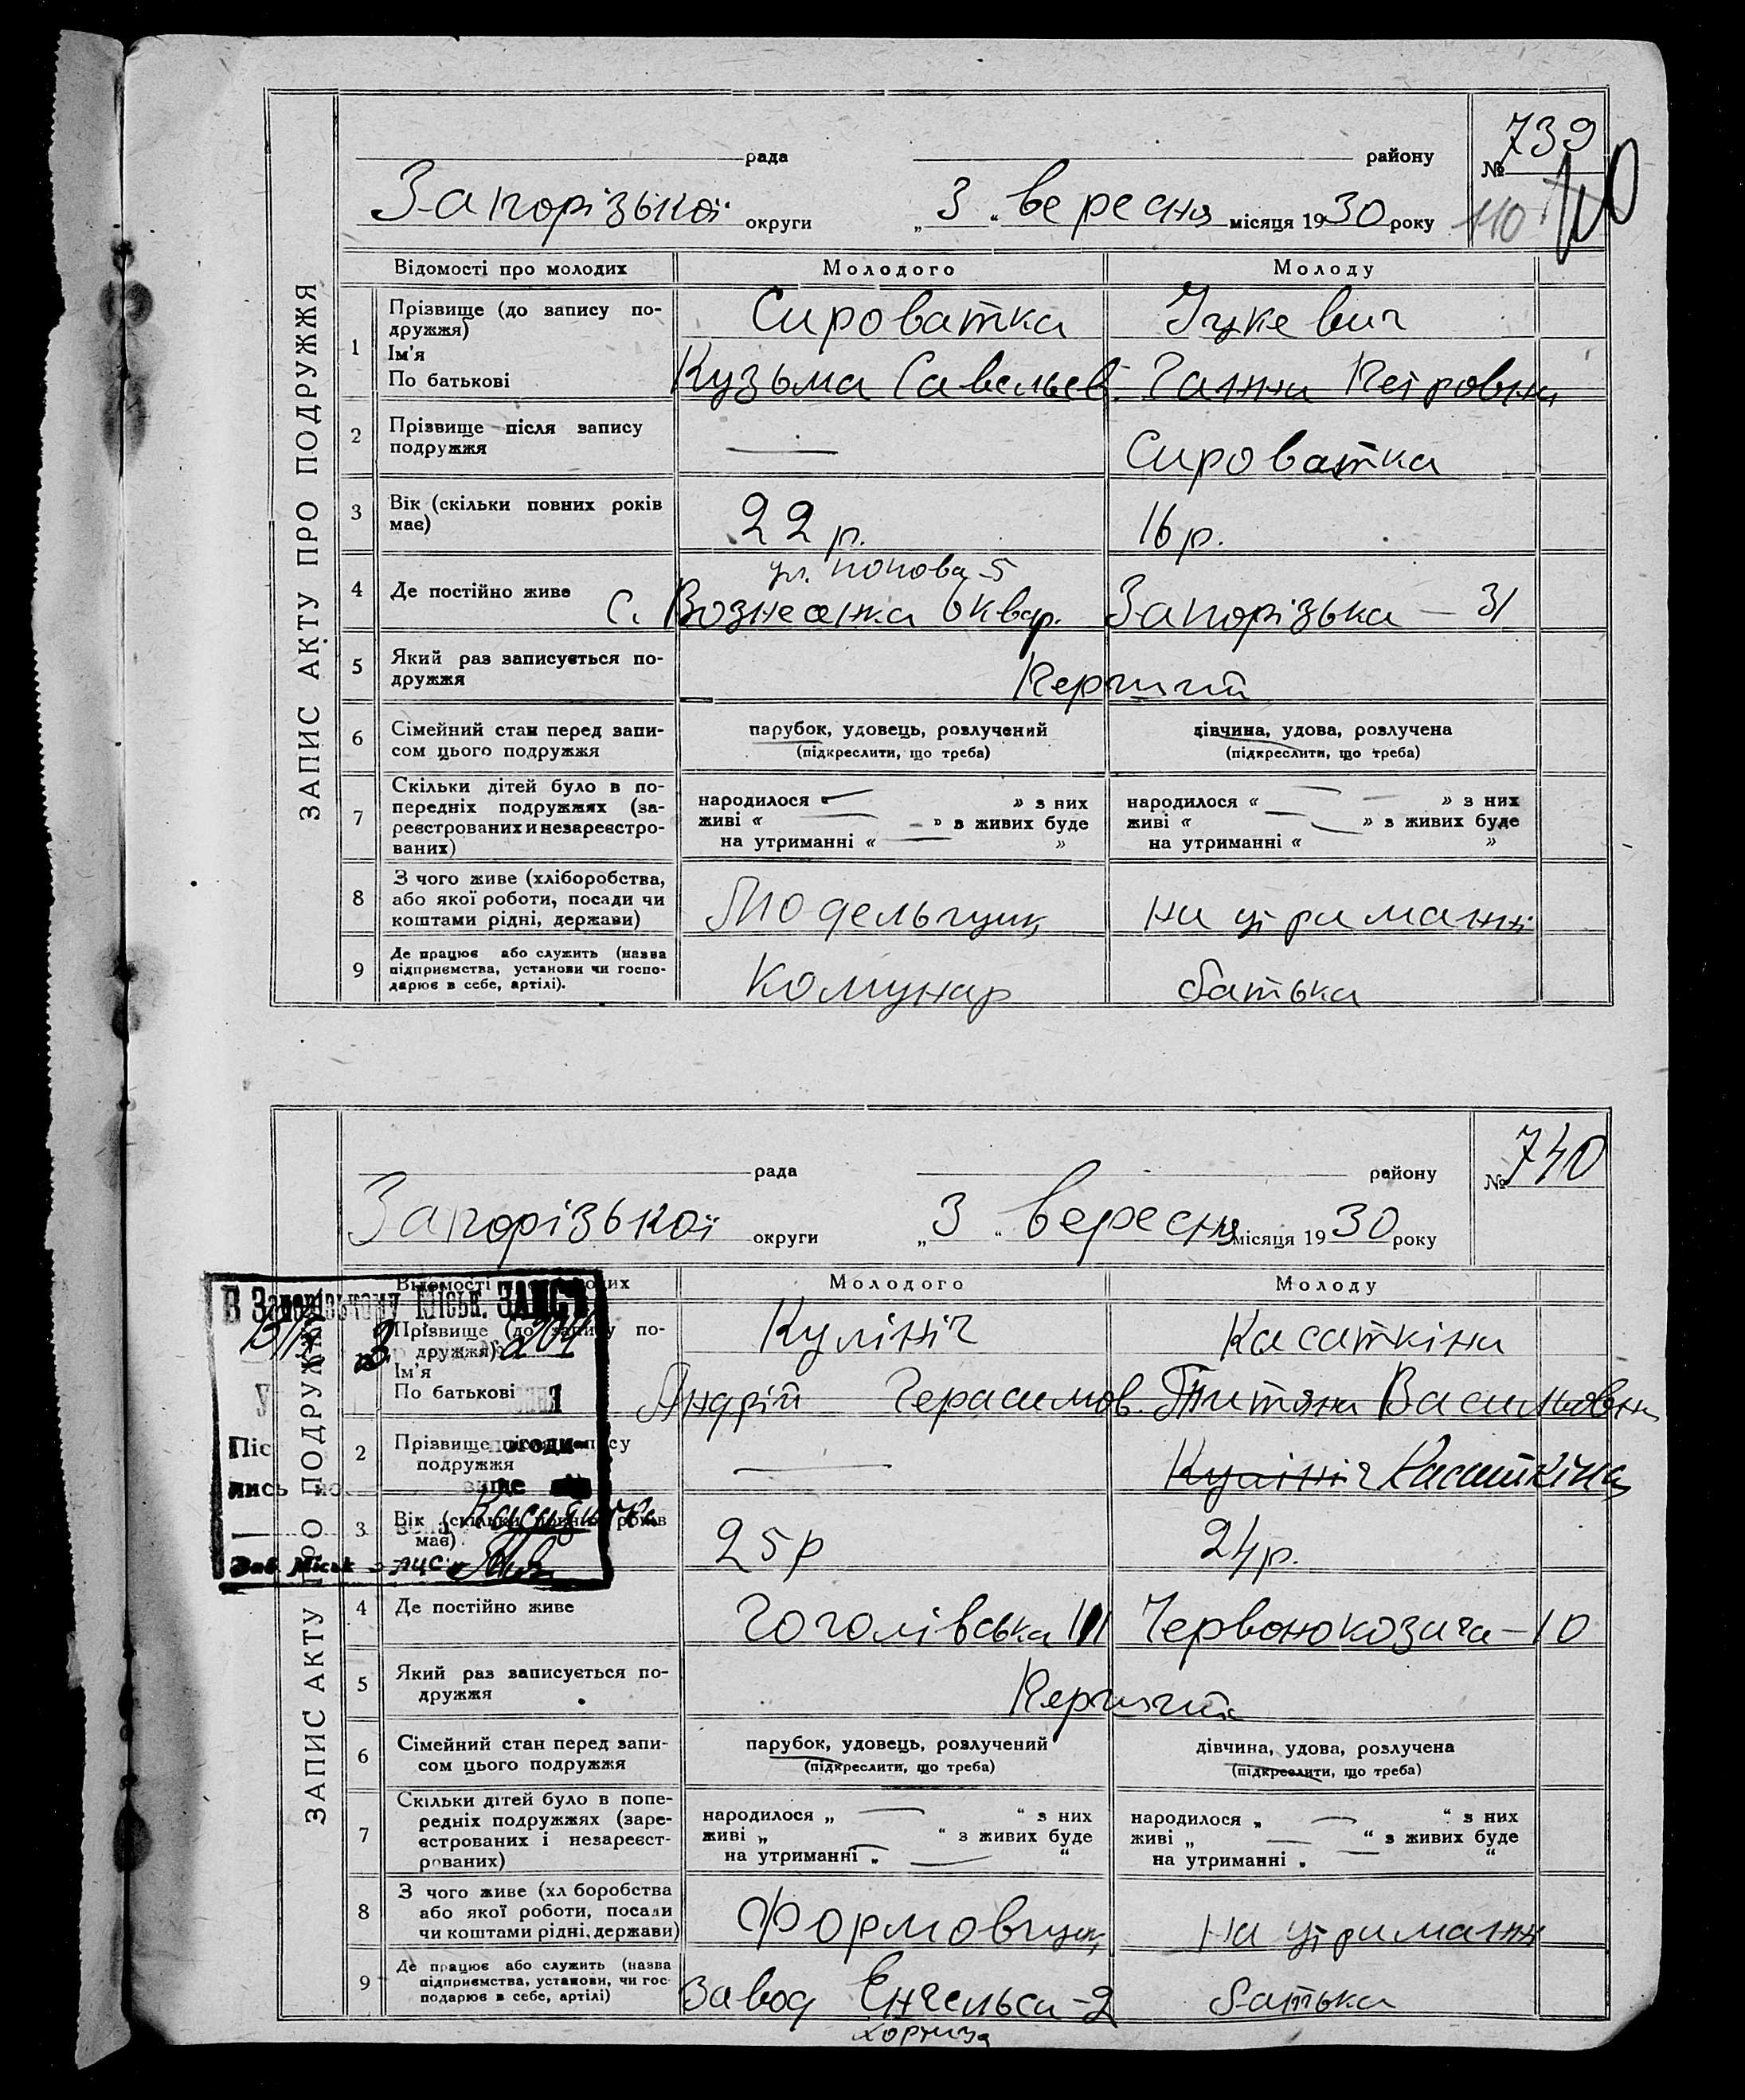 ЗАПИС АКТУ ПРО ПОДРУЖЖЯ
№ 739
рада району
110
Запорізької округи „3“ вересня місяця 1930 року
Відомості про молодих Молодого Молоду
1 Прізвище (до запису по-
дружжя) Сироватка Іцкевич
Ім’я
По батькові Кузьма Савельев. Ганна Петровна
2 Прізвище після запису
подружжя — Сироватка
3 Вік (скільки повних років
має) 22 р. 16 р.
ул. Попова-5
4 Де постійно живе с. Вознесенка 6 квар. Запорізька — 31
5 Який раз записується по-
дружжя Перший
6 Сімейний стан перед запи-
сом цього подружжя
парубок, удовець, розлучений
(підкреслити, що треба)
дівчина, удова, розлучена
(підкреслити, що треба)
7 Скільки дітей було в по-
передніх подружжях (за-
реєстрованих и незареєстро-
ваних)
народилося « — » з них
живі « — » з живих буде
на утриманні « — »
народилося « — » з них
живі « — » з живих буде
на утриманні « »
8 З чого живе (хліборобства,
або якої роботи, посади чи
коштами рідні, держави) Модельщик на утриманні
9 Де працює або служить (назва
підприємства, установи чи госпо-
дарює в себе, артілі). Комунар батька
ЗАПИС АКТУ ПРО ПОДРУЖЖЯ
№ 740
рада району
Запорізької округи „3“ вересня місяця 1930 року
Молодого Молоду
В Запорізькому Міськ. ЗАГСі
Прізвище (до запису по-
дружжя) Кулініч Касаткіна
Ім’я
По батькові Андрій Герасимов. Титяна Васильовна
2 Прізвище після запису
подружжя — Кулініч Касаткіна
3 Вік (скільки повних років
має) 25 р 24 р.
4 Де постійно живе Гоголівська 111 Червонокозача-10
5 Який раз записується по-
дружжя Перший
6 Сімейний стан перед запи-
сом цього подружжя
парубок, удовець, розлучений
(підкреслити, що треба)
дівчина, удова, розлучена
(підкреслити, що треба)
7 Скільки дітей було в попе-
редніх подружжях (заре-
єстрованих і незареєст-
рованих)
народилося „ — “ з них
живі „ “ з живих буде
на утриманні „ — “
народилося „ — “ з них
живі „ — “ з живих буде
на утриманні „ — “
8 З чого живе (хл боробства
або якої роботи, посади
чи коштами рідні, держави) Формовщик на утриманн
9 Де працює або служить (назва
підприємства, установи, чи гос-
подарює в себе, артілі) Завод Енгельса-2 батька
Хортица